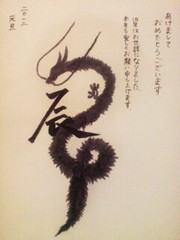 あけまして
おめでとうございます
旧年はお世話になりました
本年も宜しくお願い申し上げます
辰
二〇一二
元旦